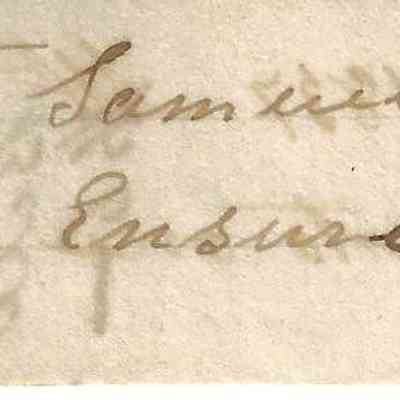 Samue
Ensure